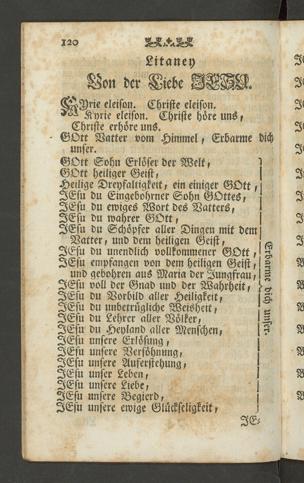 120
Litaney
Von der Liebe JESU.
KYrie eleison. Christe eleison.
Kyrie eleison. Christe höre uns,
Christe erhöre uns.
GOtt Vatter vom Himmel, Erbarme dich
unser.
GOtt Sohn Erlöser der Welt,
GOtt heiliger Geist,
Heilige Dreyfaltigkeit, ein einiger GOtt,
JEsu du Eingebohrner Sohn GOttes,
JEsu du ewiges Wort des Vatters,
JEsu du wahrer GOtt,
JEsu du Schöpfer aller Dingen mit dem
Vatter, und dem heiligen Geist,
JEsu du unendlich vollkommener GOtt,
JEsu empfangen von dem heiligen Geist,
und gebohren aus Maria der Jungfrau,
JEsu voll der Gnad und der Wahrheit,
JEsu du Vorbild aller Heiligkeit,
JEsu du unbetrügliche Weisheit,
JEsu du Lehrer aller Völker,
JEsu du Heyland aller Menschen,
JEsu unsere Erlösung,
JEsu unsere Versöhnung,
JEsu unsere Auferstehung,
JEsu unser Leben,
JEsu unsere Liebe,
JEsu unsere Begierd,
JEsu unsere ewige Glückseligkeit,
Erbarme dich unser.
JE-